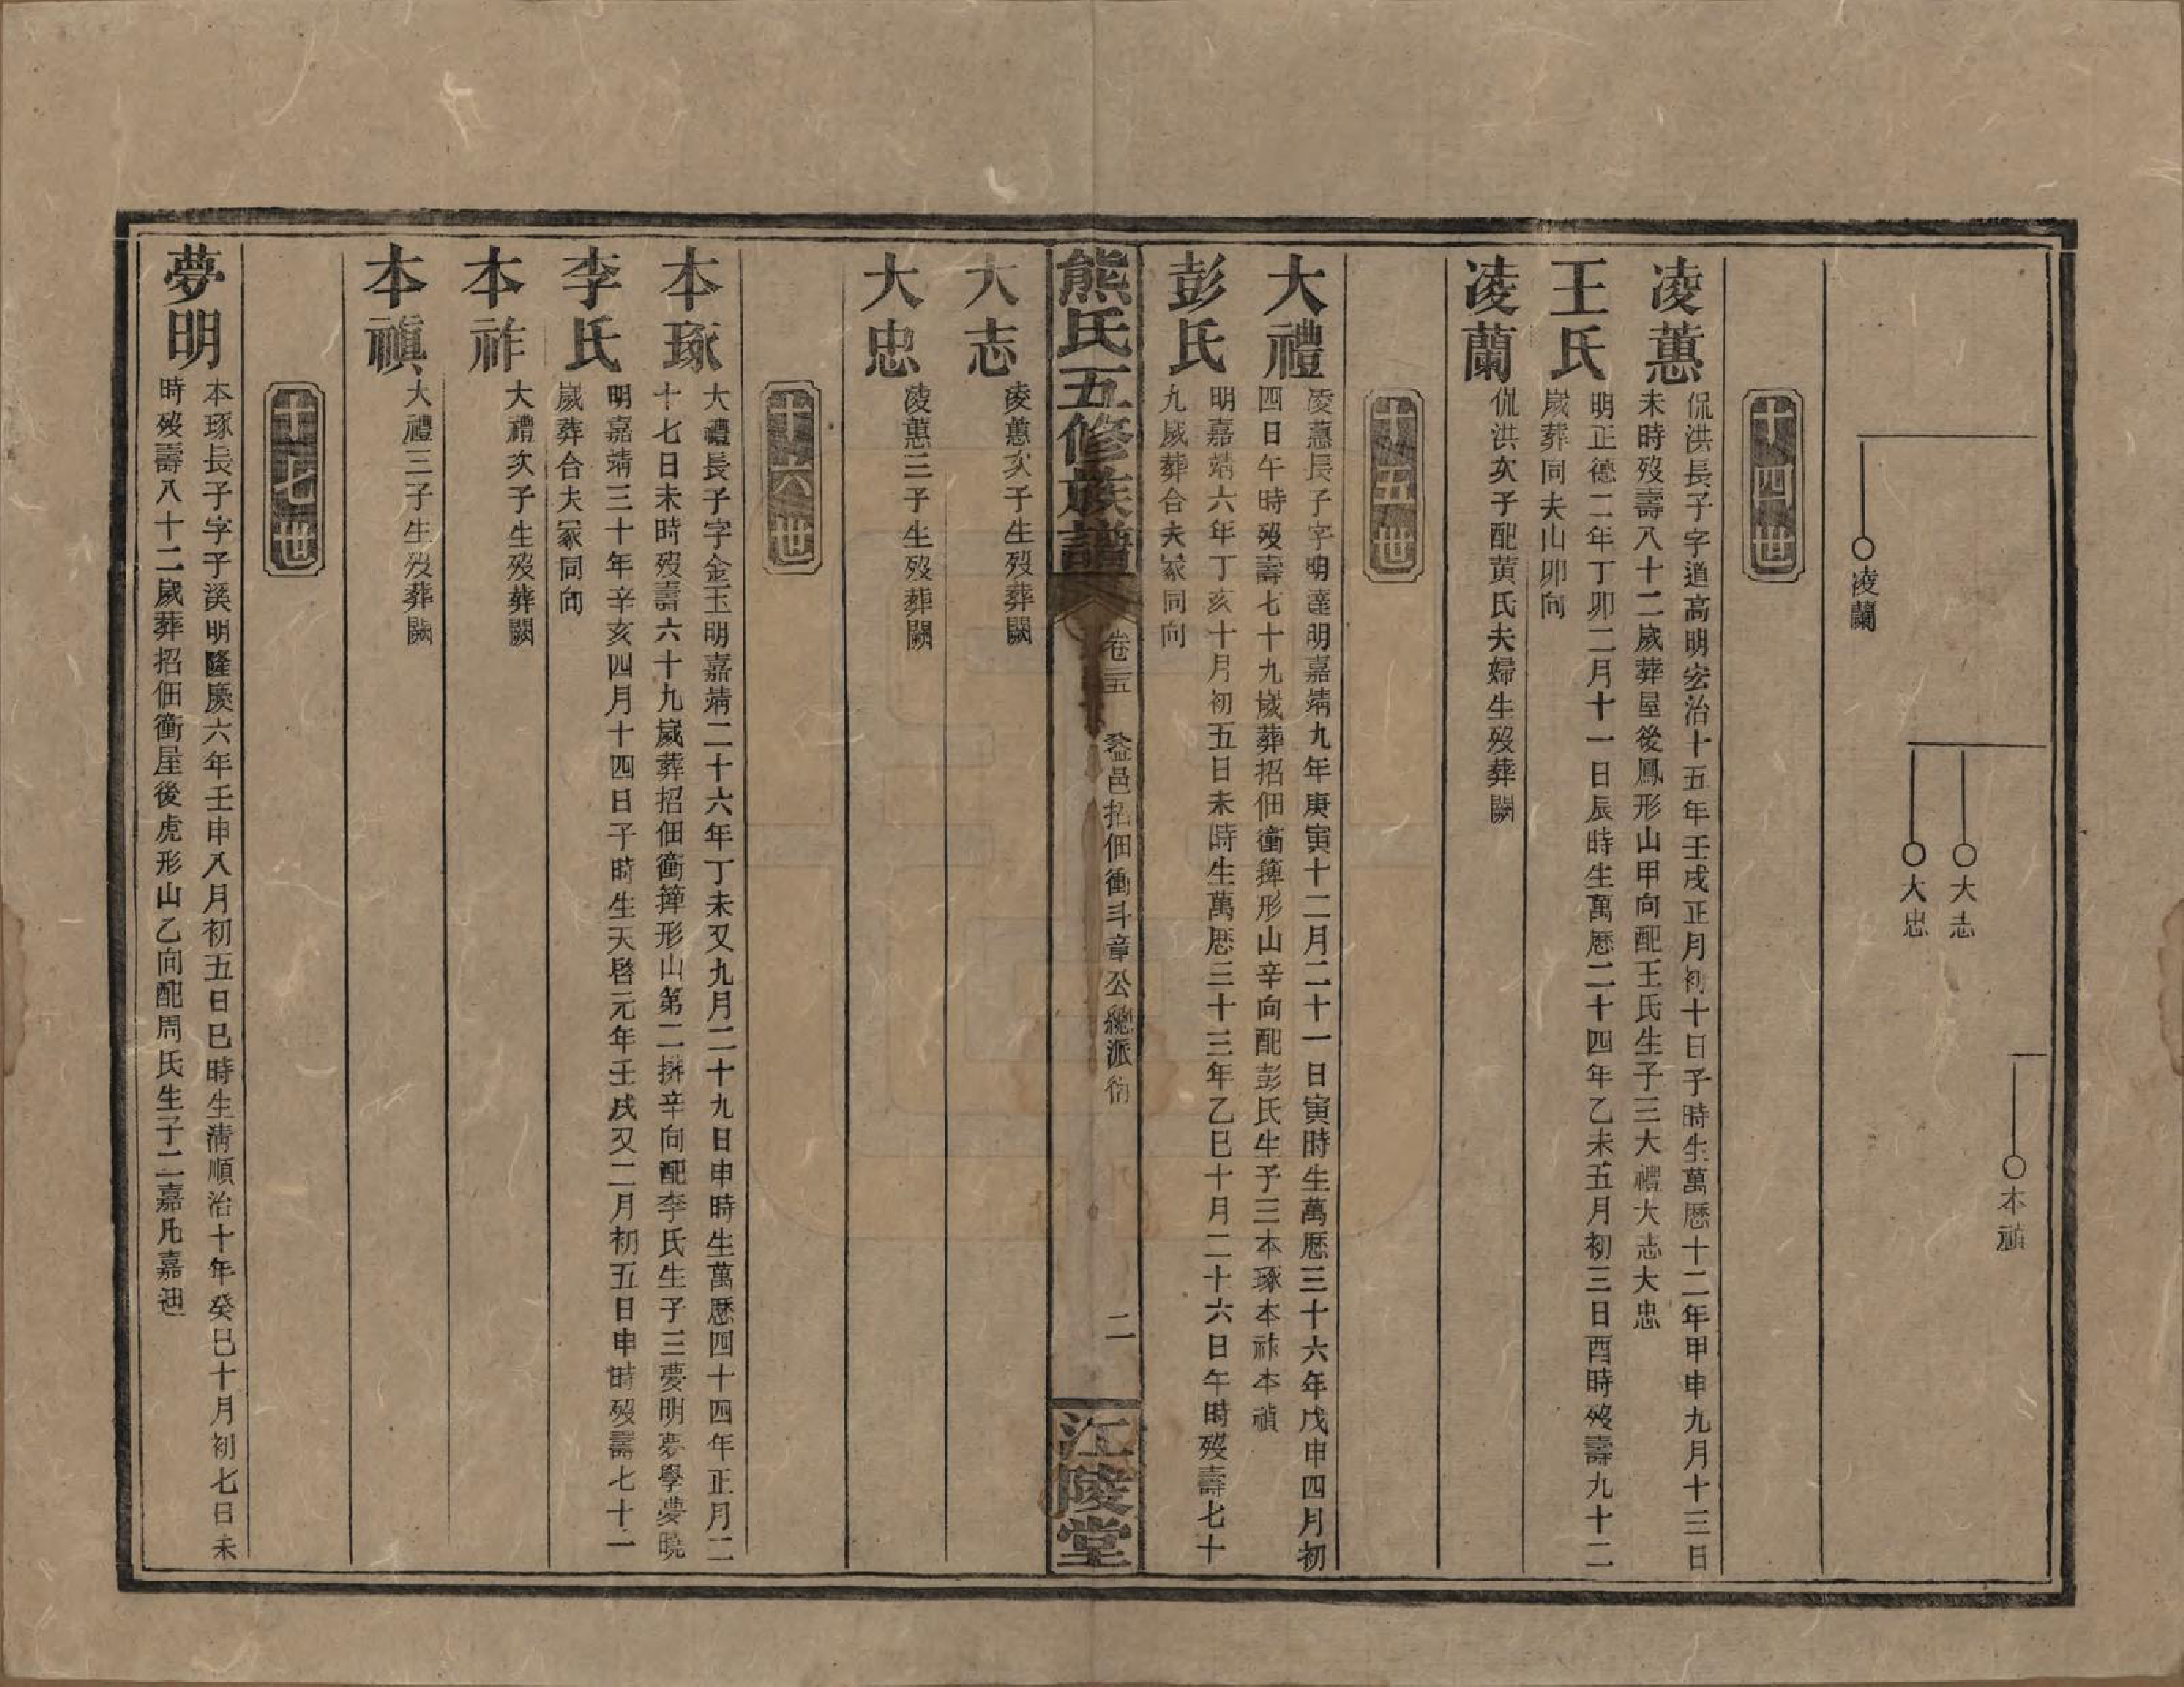 本禎
大志
大忠
凌蘭
十四世
凌蕙
侃洪長子字道高明宏治十五年壬戌正月初十日子時生萬厯十二年甲申九月十三日
未時歿壽八十二歲葬屋後鳳形山甲向配王氏生子三大禮大志大忠
王氏
明正德二年丁卯二月十一日辰時生萬厯二十四年乙未五月初三日酉時歿壽九十二
歲葬同夫山卯向
凌蘭
侃洪次子配黄氏夫婦生歿葬闕
十五世
大禮
凌蕙長子字明達明嘉靖九年庚寅十二月二十一日寅時生萬厯三十六年戊申四月初
四日午時歿壽七十九歲葬招佃衝簰形山辛向配彭氏生子三本琢本祚本禎
彭氏
明嘉靖六年丁亥十月初五日未時生萬厯三十三年乙巳十月二十六日午時歿壽七十
九歲葬合夫冢同向
熊氏五修族譜
卷三五
益邑招佃衝斗章公總派衍
二
江陵堂
大志
凌蕙次子生歿葬闕
大忠
凌蕙三子生歿葬闕
十六世
本琢
大禮長子字金玉明嘉靖二十六年丁未又九月二十九日申時生萬厯四十四年正月二
十七日未時歿壽六十九歲葬招佃衝簰形山第二排辛向配李氏生子三夢明夢學夢曉
李氏
明嘉靖三十年辛亥四月十四日子時生天啓元年壬戌又二月初五日申時歿壽七十一
歲葬合夫冢同向
本祚
大禮次子生歿葬闕
本禎
大禮三子生歿葬闕
十七世
夢明
本琢長子字子溪明隆慶六年壬申八月初五日巳時生清順治十年癸巳十月初七日未
時歿壽八十二歲葬招佃衝屋後虎形山乙向配周氏生子二嘉凡嘉廸